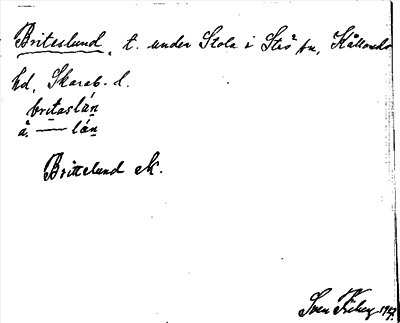 Briteslund, t. under Stola i Strö sn, Kållands
hd, Skarab. l.
britaslán
ä. — lán
Brittelund ek.
Sven